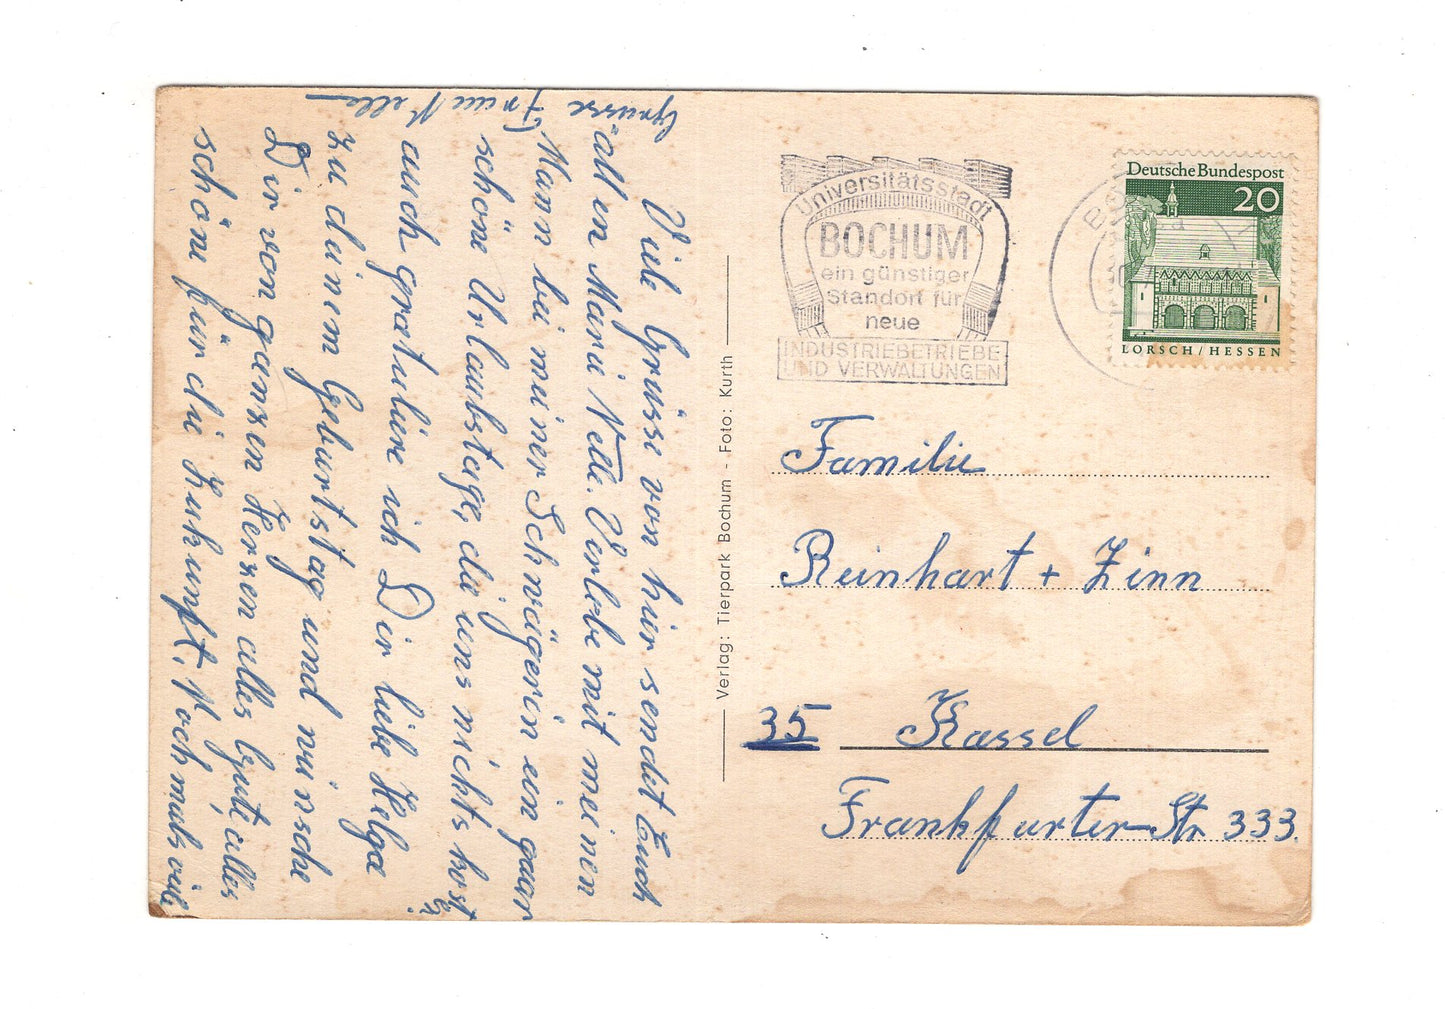 Viele Grüsse von hier sendet Euch
allen Marie Nelle. Verlebe mit meinen
Mann bei meiner Schwägerin ein paar
schöne Urlaubstage, die uns nichts kosten!
auch gratuliere ich Dir liebe Helga
zu deinem Geburtstag und wünsche
Dir von ganzen Herzen alles Gute, alles
schöne für die Zukunft, Nochmals viele
Grüsse Frau Nelle
Verlag: Tierpark Bochum - Foto: Kurth
Universitätsstadt
BOCHUM
ein günstiger
Standort für
neue
INDUSTRIEBETRIEBE
UND VERWALTUNGEN
Deutsche Bundespost
20
LORSCH/HESSEN
Familie
Reinhart + Zinn
35 Kassel
Frankfurter Str 333.